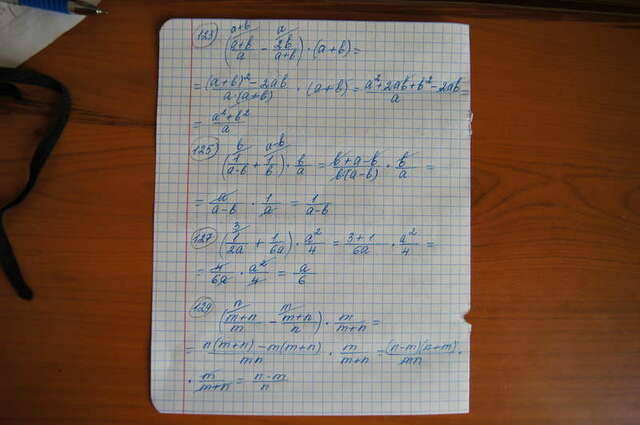 123) ((a+b)/a - 2b/(a+b)) · (a+b) =
= ((a+b)² - 2ab)/(a·(a+b)) · (a+b) = (a²+2ab+b²-2ab)/a =
= (a²+b²)/a
125) (1/(a-b) + 1/b) · b/a = (b+a-b)/(b(a-b)) · b/a =
= a/(a-b) · 1/a = 1/(a-b)
127) (1/2a + 1/6a) · a²/4 = (3+1)/6a · a²/4 =
= 4/6a · a²/4 = a/6
129) ((m+n)/m - (m+n)/n) · m/(m+n) =
= (n(m+n) - m(m+n))/mn · m/(m+n) = (n-m)(n+m)/mn ·
· m/(m+n) = (n-m)/n